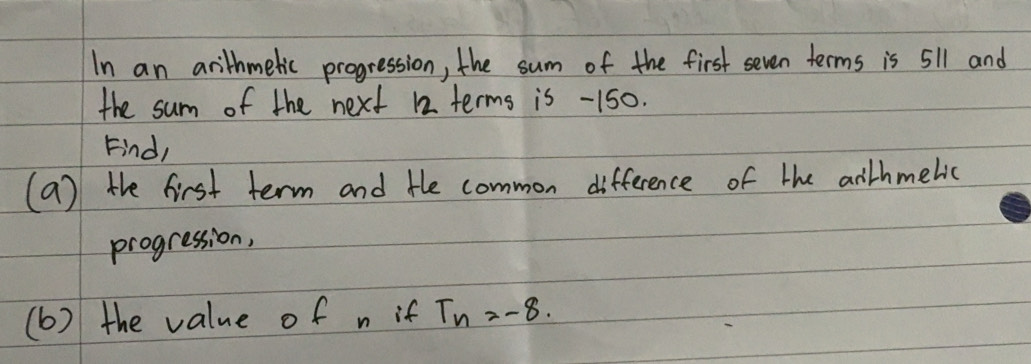 In an arithmetic progression, the sum of the first seven terms is 511 and
the sum of the next 12 terms is -150.
Find,
(a) the first term and the common difference of the arithmetic
progression,
(b) the value of n if Tn = -8.